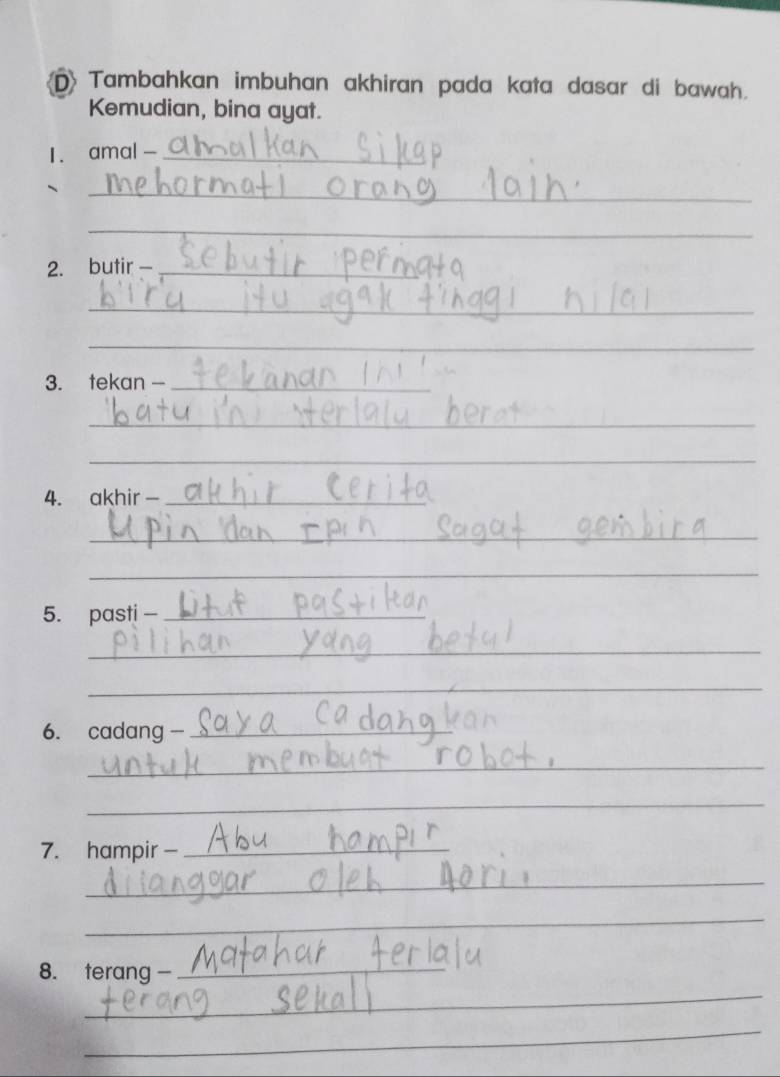 D Tambahkan imbuhan akhiran pada kata dasar di bawah.
Kemudian, bina ayat.
1. amal – amalkan sikap
mehormati orang lain.
2. butir – sebutir permata
biru itu agak tinggi nilai
3. tekan – tekanan ini
batu ini terlalu berat
4. akhir – akhir cerita
Upin dan Ipin sagat gembira
5. pasti – pastikan
pilihan yang betul
6. cadang – saya cadangkan
untuk membuat robot.
7. hampir – Abu hampir
dilanggar oleh lori.
8. terang – Matahar terlalu
terang sekali